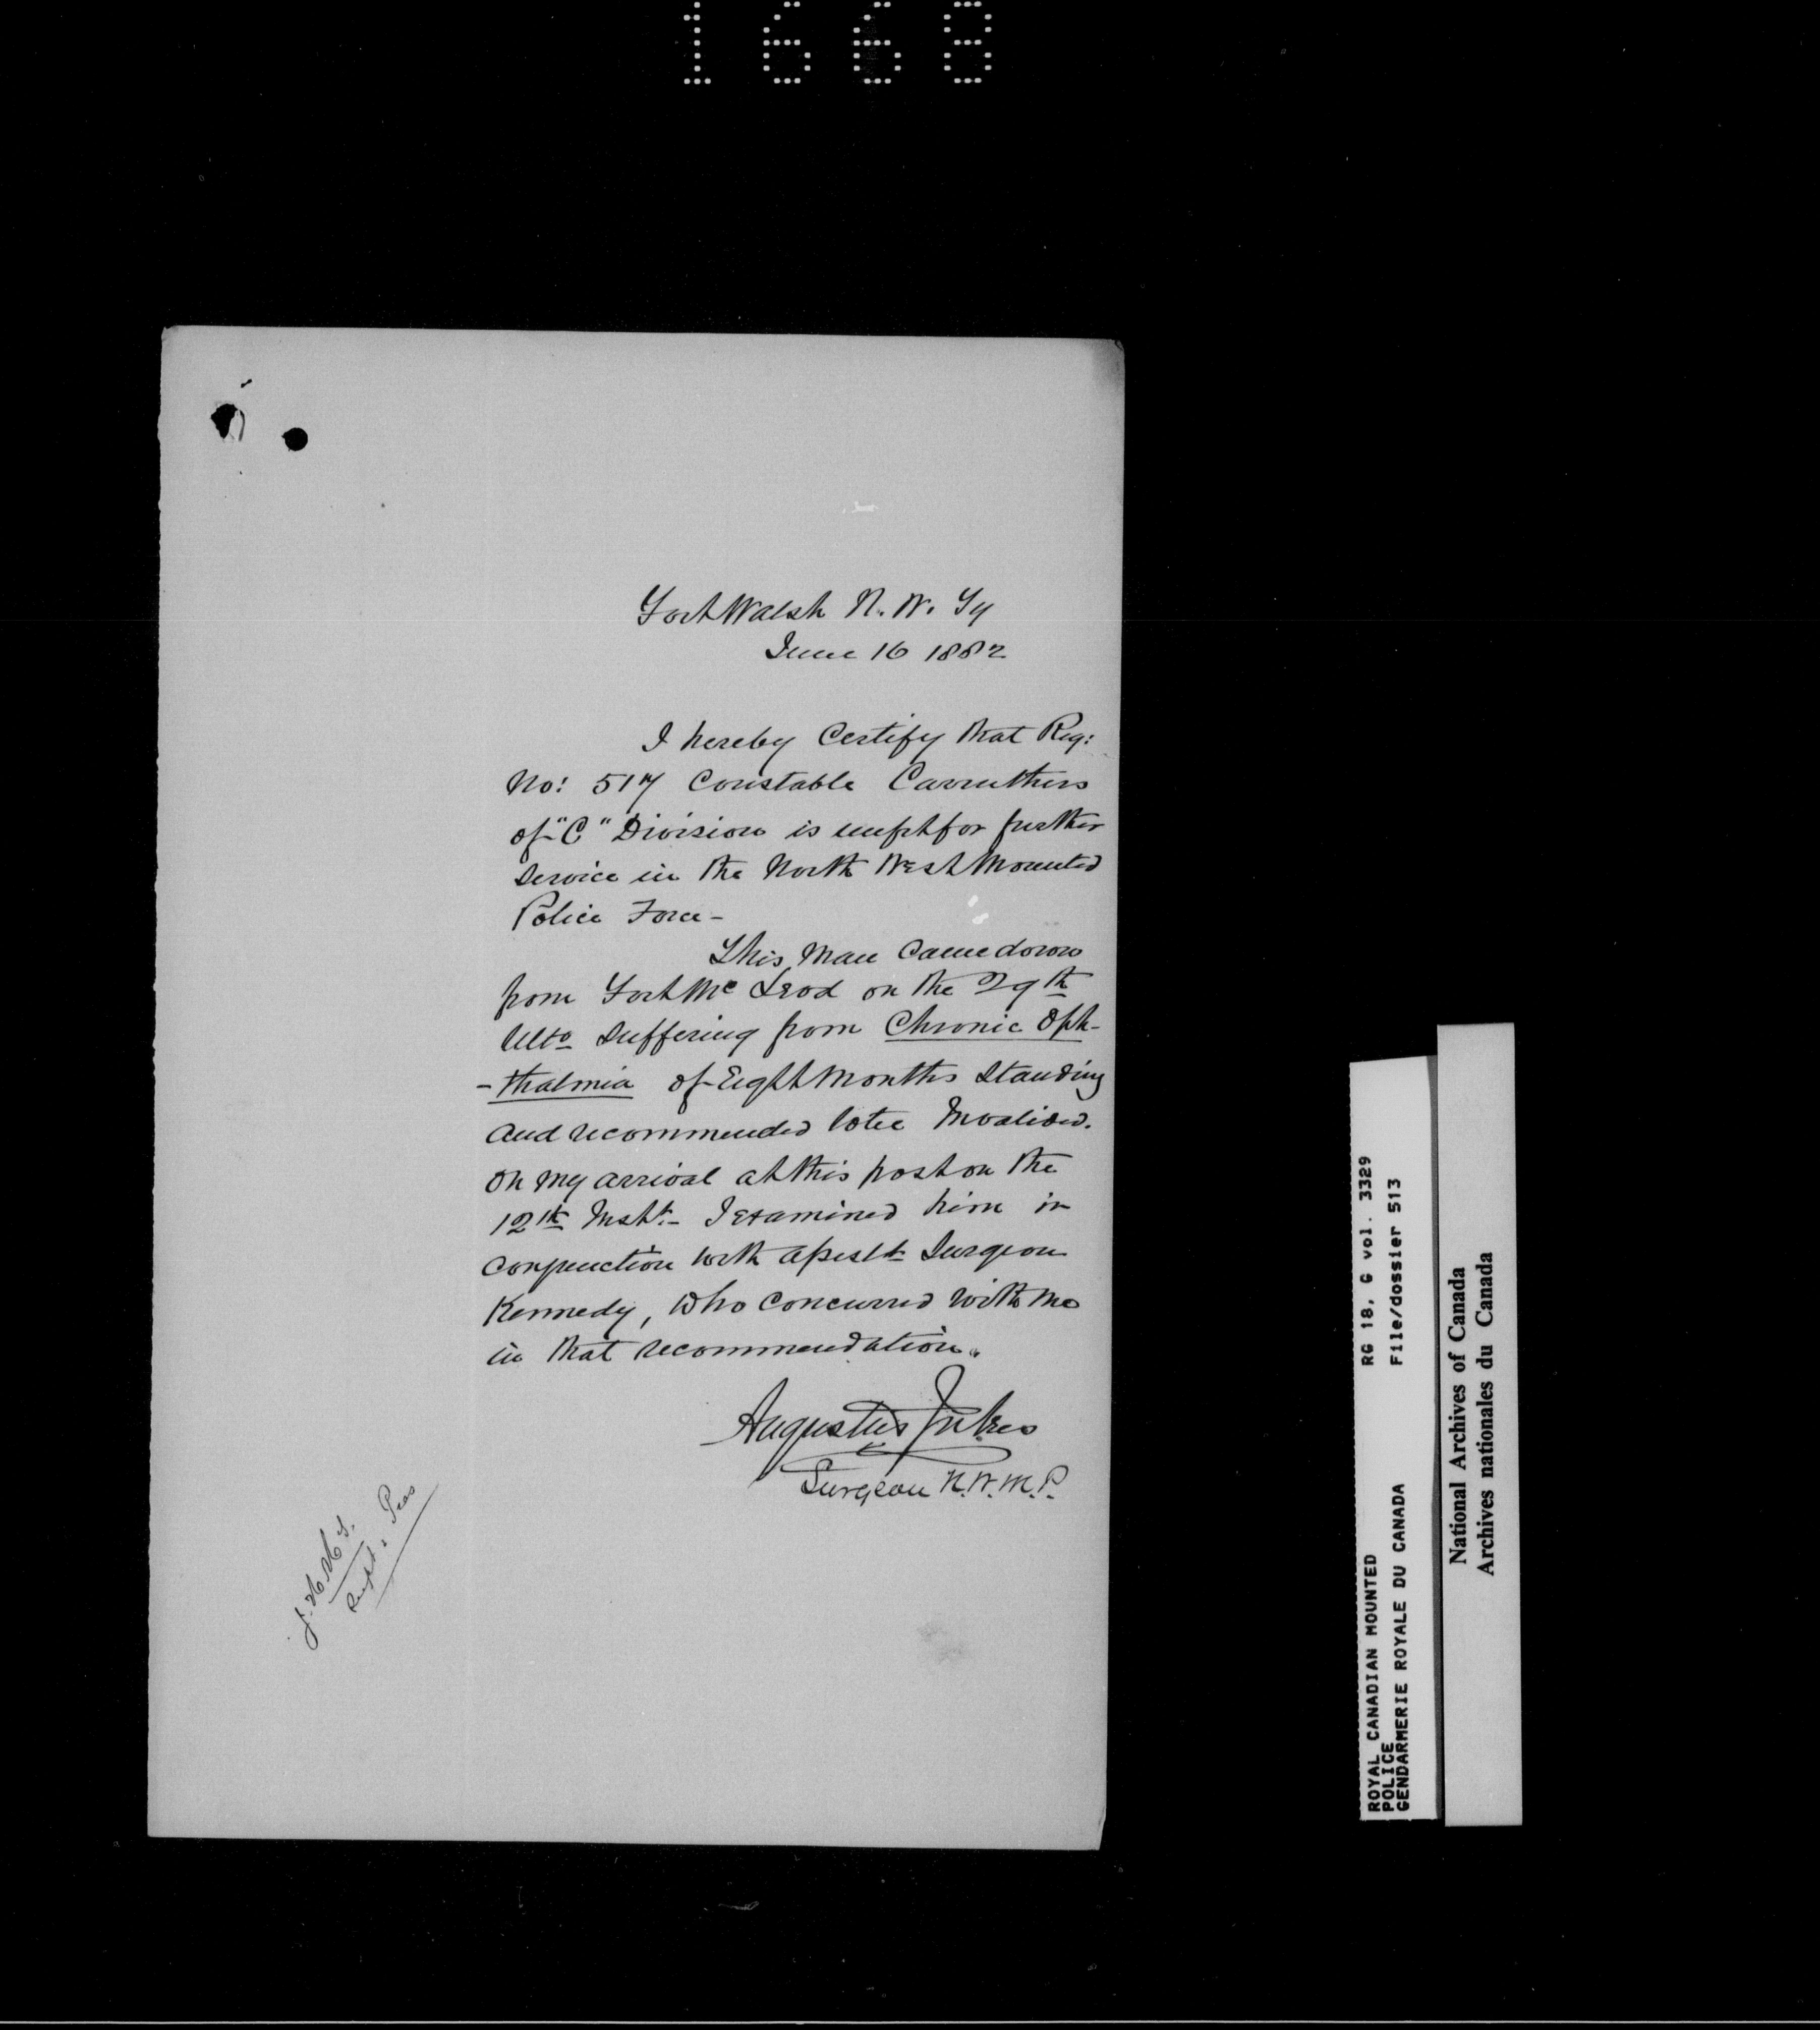 1668
Fort Walsh N. W. Ty
June 16 1882
I hereby Certify that Reg:
No: 517 Constable Carruthers
of "C" Division is unfit for further
Service in the North West Mounted
Police Force -
This Man Came down
from Fort Mc Leod on the 29th
Ulto Suffering from Chronic Oph-
-thalmia of Eight Months Standing
and recommended to be Invalided.
On my arrival at this post on the
12th Instt - I Examined him in
conjunction with Assistt Surgeon
Kennedy, who Concurred with me
in that recommendation.
Augustus Jukes
Surgeon N.W.M.P.
ROYAL CANADIAN MOUNTED
POLICE
GENDARMERIE ROYALE DU CANADA
RG 18, G vol. 3329
File/dossier 513
National Archives of Canada
Archives nationales du Canada